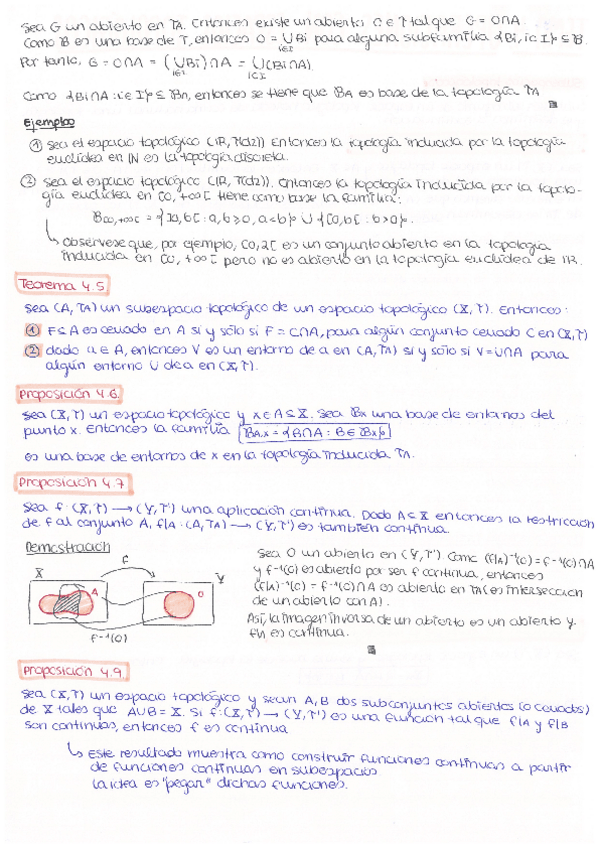 Sea G un abierto en TA. Entonces existe un abierto O ∈ T tal que G = O∩A
Como B es una base de T, entonces O = ∪Bi para alguna subfamilia {Bi, i∈I} ⊆ B.
i∈I
Por tanto, G = O∩A = (∪Bi)∩A = ∪(Bi∩A)
i∈I i∈I
Como {Bi∩A : i∈I} ⊆ BA, entonces se tiene que BA es base de la topología TA
Ejemplos
① Sea el espacio topológico (IR, T(d2)) Entonces la topología inducida por la topología
euclídea en IN es la topología discreta.
② Sea el espacio topológico (IR, T(d2)). Entonces la topología inducida por la topolo-
gía euclídea en [0,+∞[ tiene como base la familia:
B[0,+∞[ = {]a,b[ : a,b≥0, a<b} ∪ {[0,b[ : b>0}.
↳ Obsérvese que, por ejemplo, [0,2[ es un conjunto abierto en la topología
inducida en [0,+∞[ pero no es abierto en la topología euclídea de IR.
Teorema 4.5
Sea (A, TA) un subespacio topológico de un espacio topológico (X,T). Entonces:
① F⊆A es cerrado en A si y sólo si F = C∩A, para algún conjunto cerrado C en (X,T)
② dado a∈A, entonces V es un entorno de a en (A,TA) si y sólo si V=U∩A para
algún entorno U de a en (X,T).
Proposición 4.6.
Sea (X,T) un espacio topológico y x∈A⊆X. Sea Bx una base de entornos del
punto x. Entonces la familia BA,x = {B∩A : B∈Bx}
es una base de entornos de x en la topología inducida TA.
Proposición 4.7
Sea f: (X,T) → (Y,T') una aplicación continua. Dado A⊂X entonces la restricción
de f al conjunto A, f|A : (A,TA) → (Y,T') es también continua.
Demostración
X f Y
A O
f⁻¹(O)
Sea O un abierto en (Y,T'). Como (f|A)⁻¹(O) = f⁻¹(O)∩A
y f⁻¹(O) es abierto por ser f continua, entonces
(f|A)⁻¹(O) = f⁻¹(O)∩A es abierto en TA (es intersección
de un abierto con A).
Así, la imagen inversa de un abierto es un abierto y
f|A es continua.
Proposición 4.9.
Sea (X,T) un espacio topológico y sean A,B dos subconjuntos abiertos (o cerrados)
de X tales que A∪B = X. Si f: (X,T) → (Y,T') es una función tal que f|A y f|B
son continuas, entonces f es continua
↳ Este resultado muestra como construir funciones continuas a partir
de funciones continuas en subespacios
La idea es "pegar" dichas funciones.